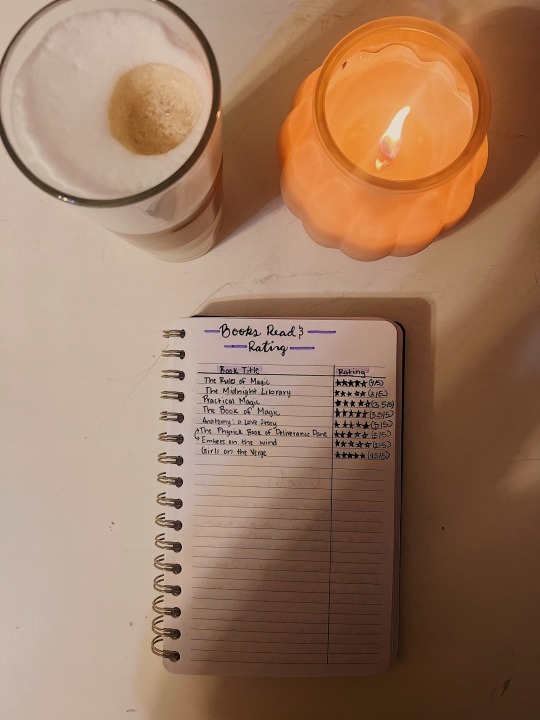 Books Read &
Rating
Book Title Rating
The Rules of Magic ★★★★★
The Midnight Library ★★★★★
Practical Magic ★★★★★ (3.5/5)
The Book of Magic ★★★★★ (3.5/5)
Anatomy: a Love Story ★★★★★ (5/5)
The Physick Book of Deliverance Dane ★★★★★
Embers on the wind ★★★★★
Girls on the Verge ★★★★★ (4.5/5)